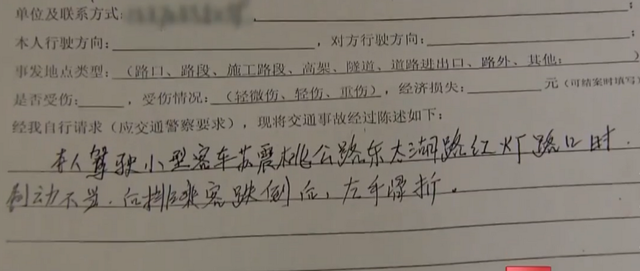 单位及联系方式:
本人行驶方向: ，对方行驶方向:
事发地点类型: (路口、路段、施工路段、高架、隧道、道路进出口、路外、其他:
是否受伤: ，受伤情况: (轻微伤、轻伤、重伤)，经济损失: 元(可结案时填写
经我自行请求(应交通警察要求)，现将交通事故经过陈述如下:
本人驾驶小型客车苏震桃公路东太湖路红灯路口时.
制动不当.后排乘客跌倒后,左手骨折.